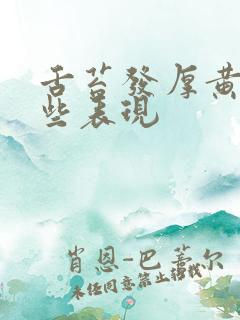 舌苔發厚黃
些表現
肖恩-巴蒂尔
未经同意禁止转载